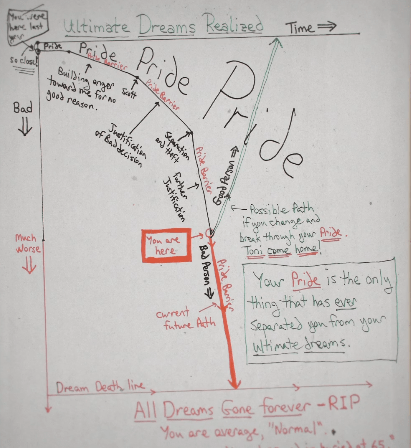 You were
here last
Ultimate Dreams Realized
Time
so close
Pride
Pride
Pride
Pride
Pride Barrier
Building anger
toward me for no
good reason.
Scott
Pride Barrier
Justification
of Bad decision
Separation
and theft
Pride Barrier
Further
Justification
Bad
Good Person
Possible Path
if you change and
break through your Pride.
Toni come home!
Much
Worse
You are
here
Bad Person
Pride Barrier
current
future Path
Your Pride is the only
thing that has ever
separated you from your
ultimate dreams.
Dream Death line
All Dreams Gone forever - RIP
You are average, "Normal".